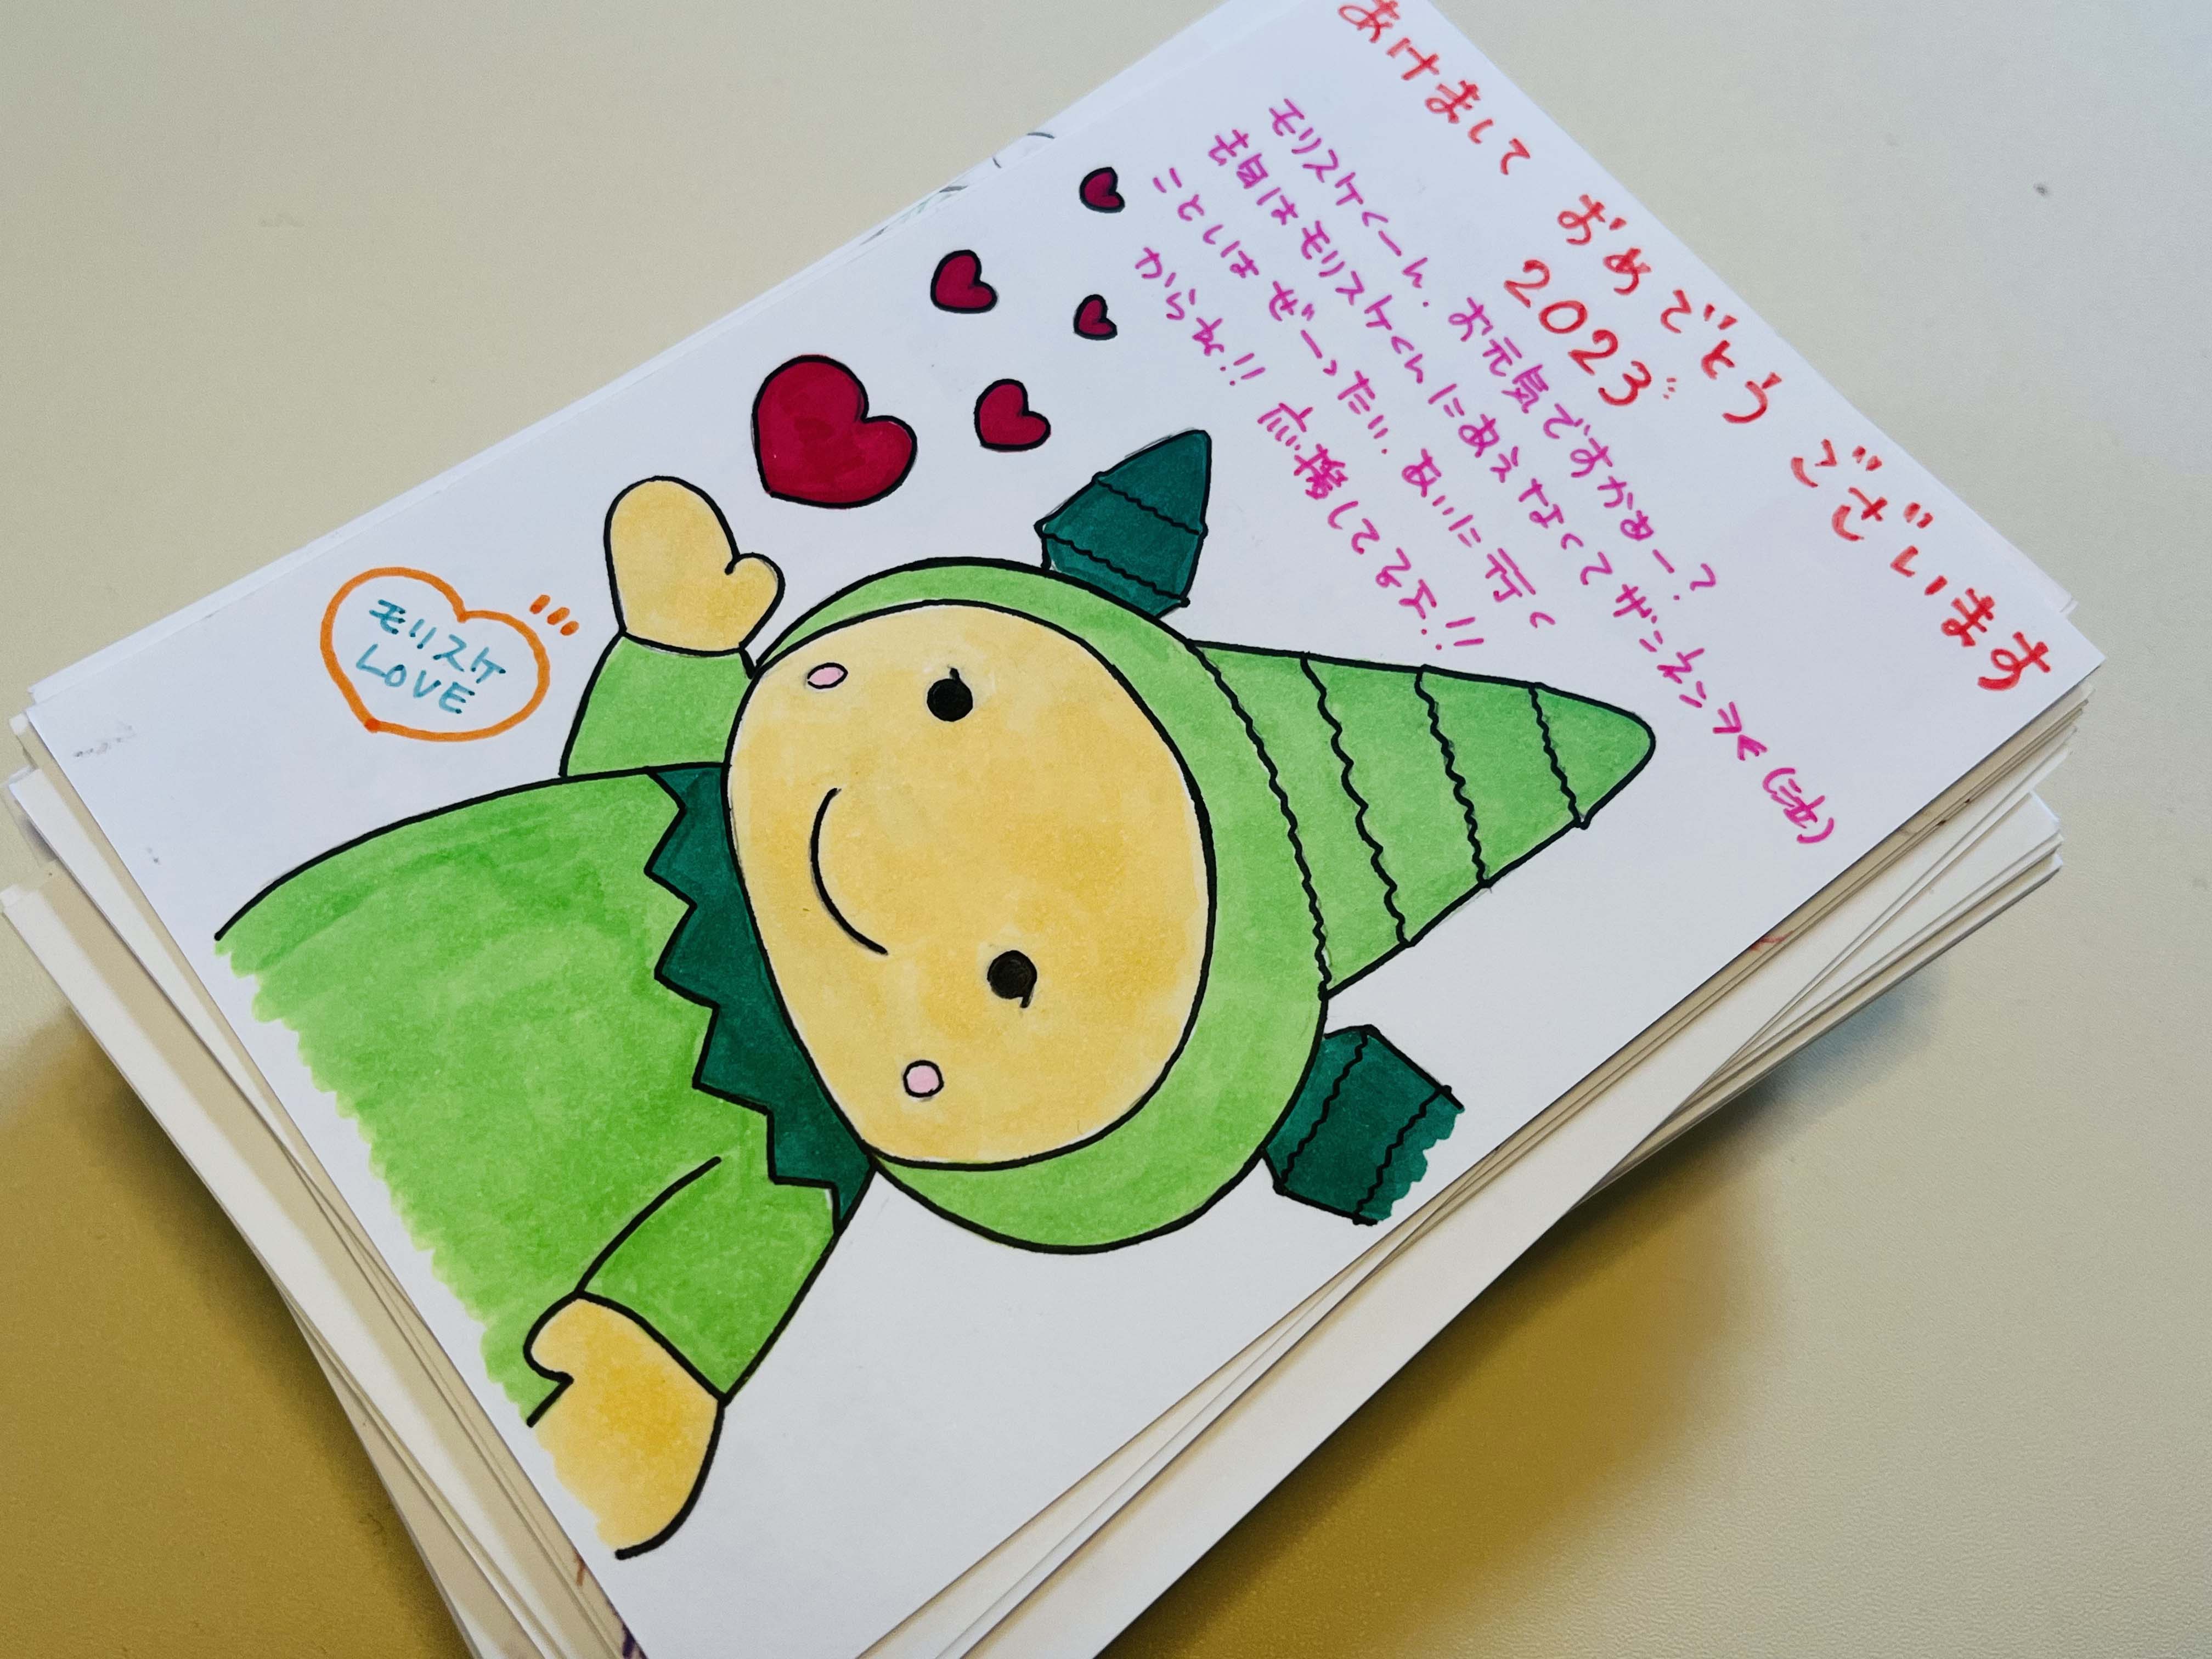 あけまして おめでとう ございます
2023
モリスケくーん. お元気ですかぁー?
去年はモリスケくんにあえなくてザンネンヌ(泣)
ことしは ぜーったい. あいに行く
からね!! 応援してるよ!!
モリスケ
LOVE